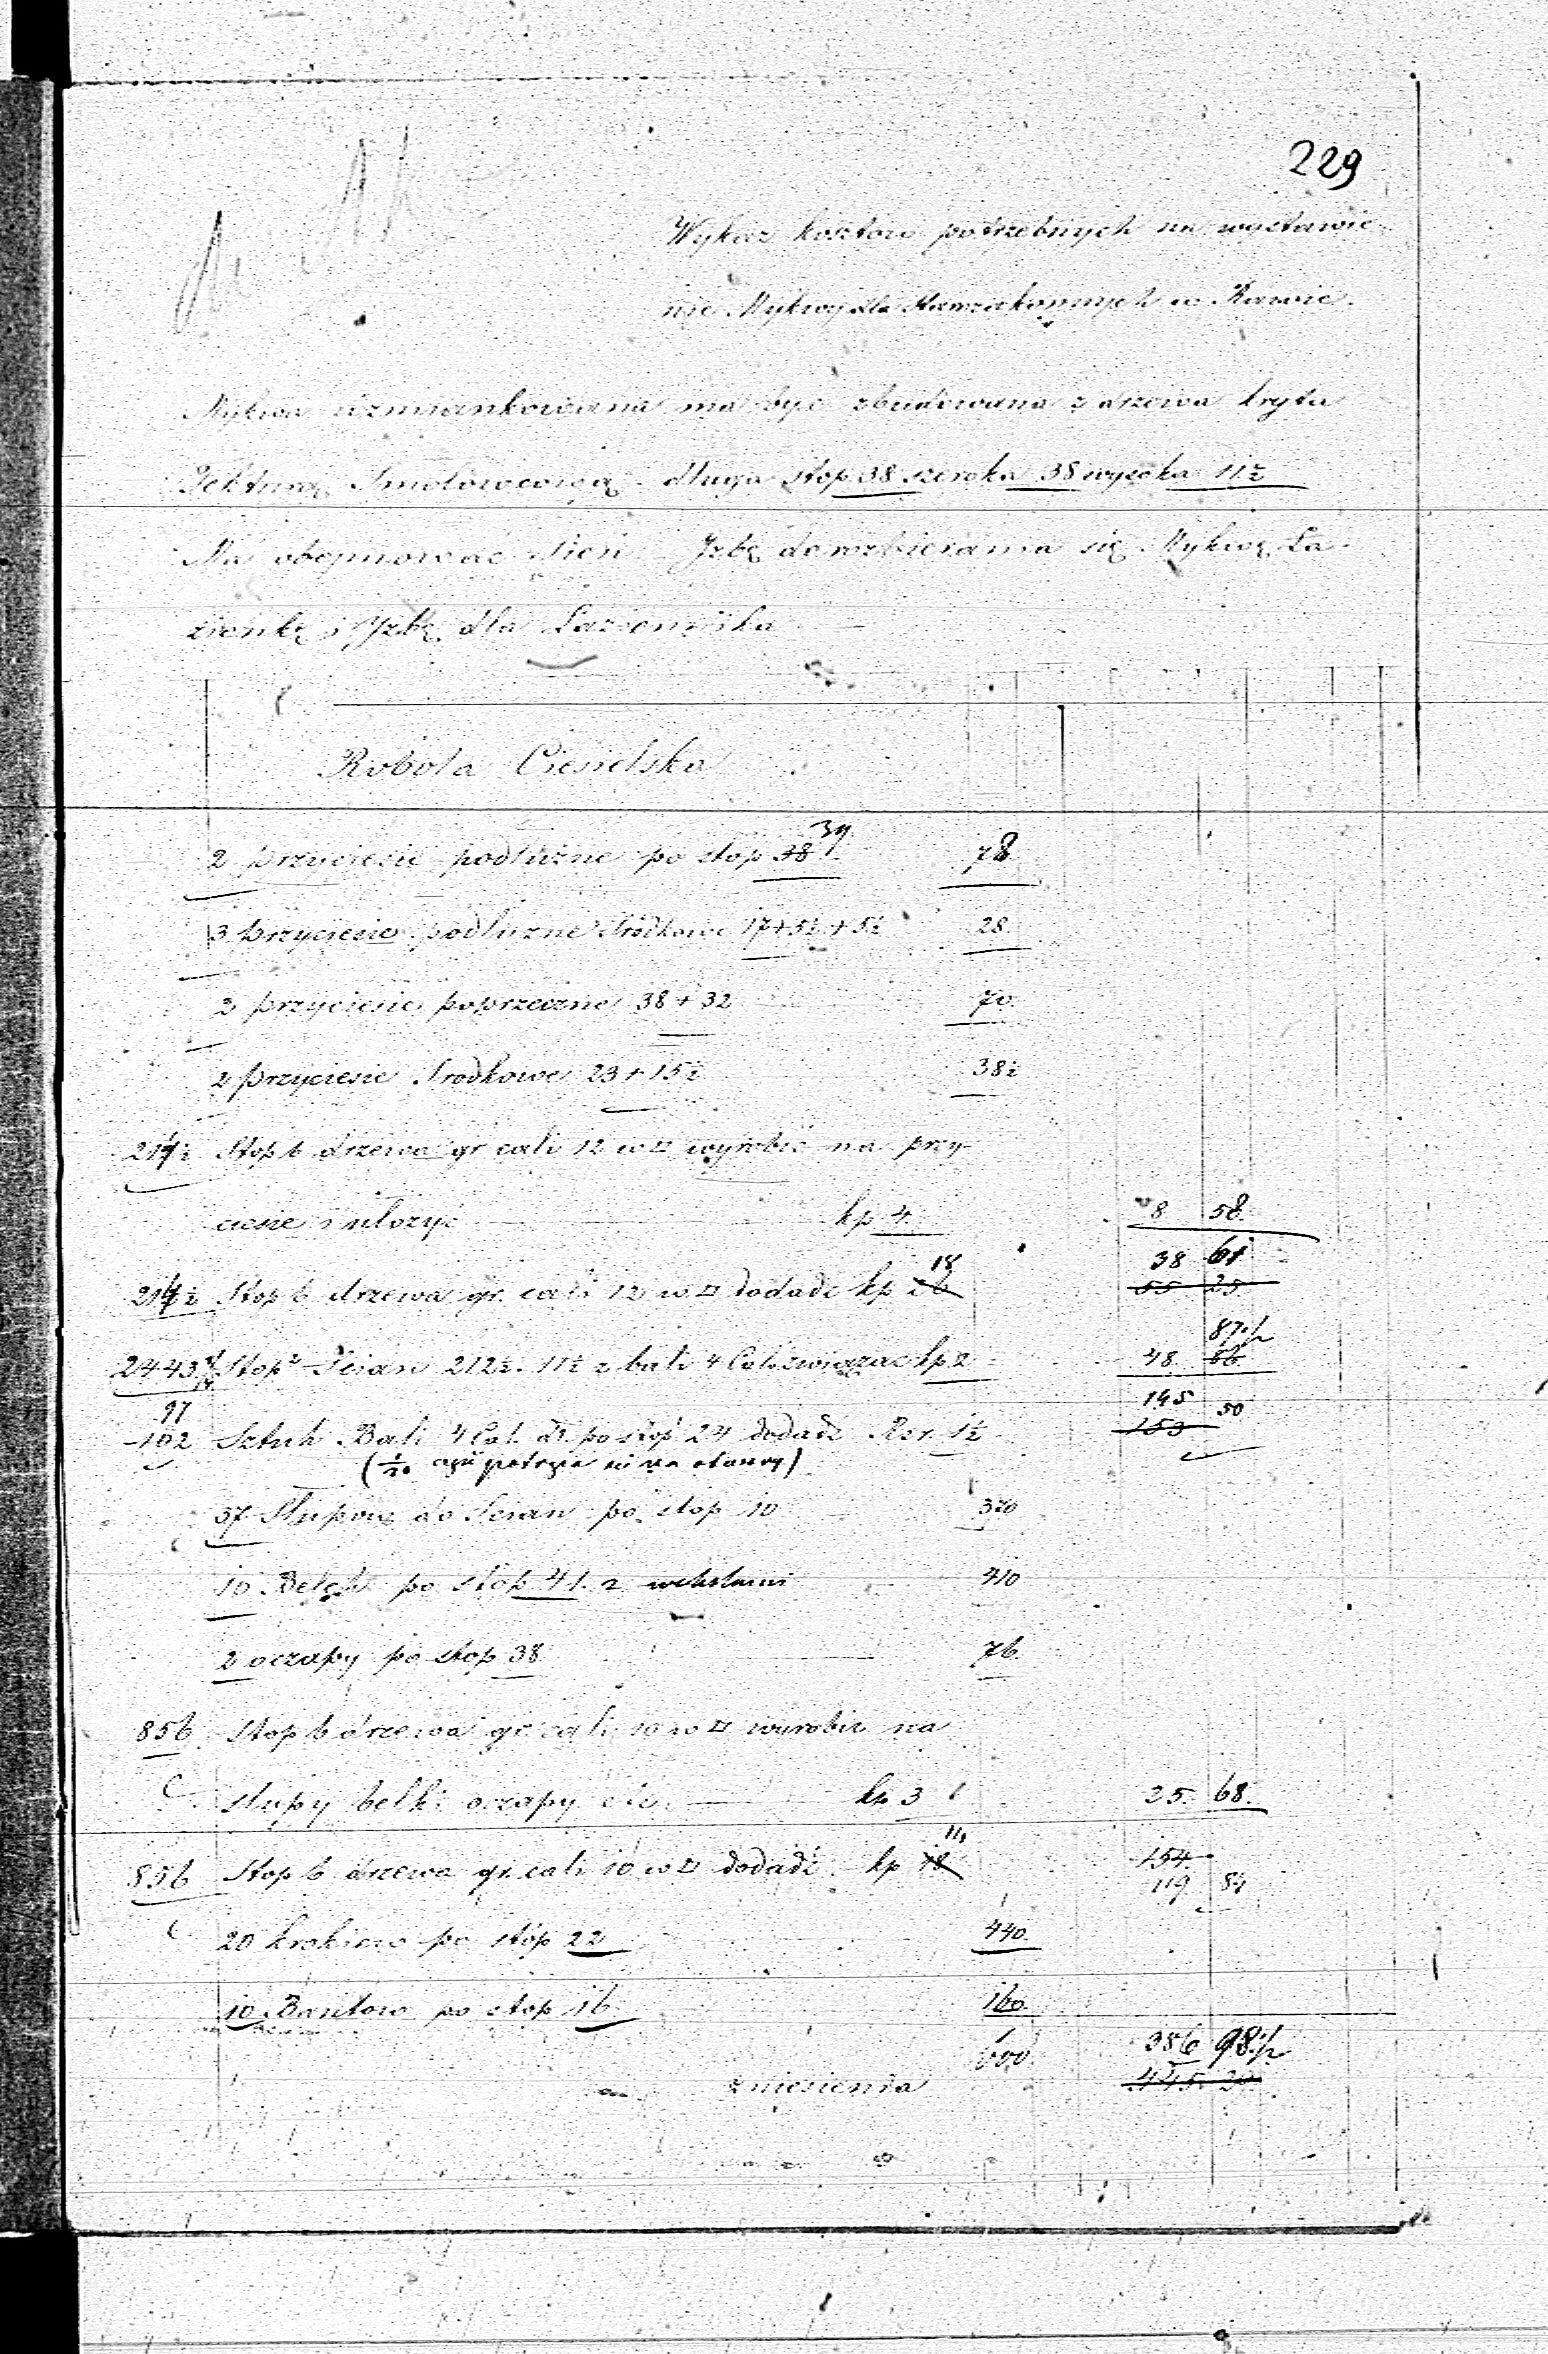 229
Wykaz kosztow potrzebnych na wystawie-
nie Mykwy dla Starozakonnych w Rawie.
Mykwa wzmiankowana ma być zbudowana z drzewa kryta
Tekturą Smolowcową długa stop 38 szeroka 38 wysoka 11½
Ma obejmować Sień Izbę do rozbierania się Mykwę Ła-
zienkę i Izbę dla Łaziennika
Robota Ciesielska
2 przyciesie podłużne po stop 38 39 78
3 przyciesie podłużne Srodkowe 17+5½+5½ 28
2 przyciesie poprzeczne 38+32 70
2 przyciesie Srodkowe 23+15½ 38½
214½ Stop b drzewa gr cali 12 w □ wyrobić na przy-
ciesie i ułożyć kp 4 8 58
38 61
214½ Stop b drzewa gr. cali 12 w □ dodadź kp 26 18 55 25
87½
2443 Stop² Scian 212½ 11½ z bali 4 Cal. związać kp 2 48 86
97 145 50
102 Sztuk Bali 4 Cal. dł. po stop 24 dodadź Rsr. 1½ 153
37 Słupow do Scian po stop 10 370
10 Belek po stop 41 410
2 oczapy po stop 38 76
856 Stop b drzewa gr cali 10 w □ wyrobić na
słupy belki oczapy etc. kp 3 25 68
856 Stop b drzewa gr. cali 10 w □ dodadź kp 18 14 154
119 84
20 krokiew po stop 22 440
10 Bantow po stop 16 160
600 386 98½
zniesienia 445